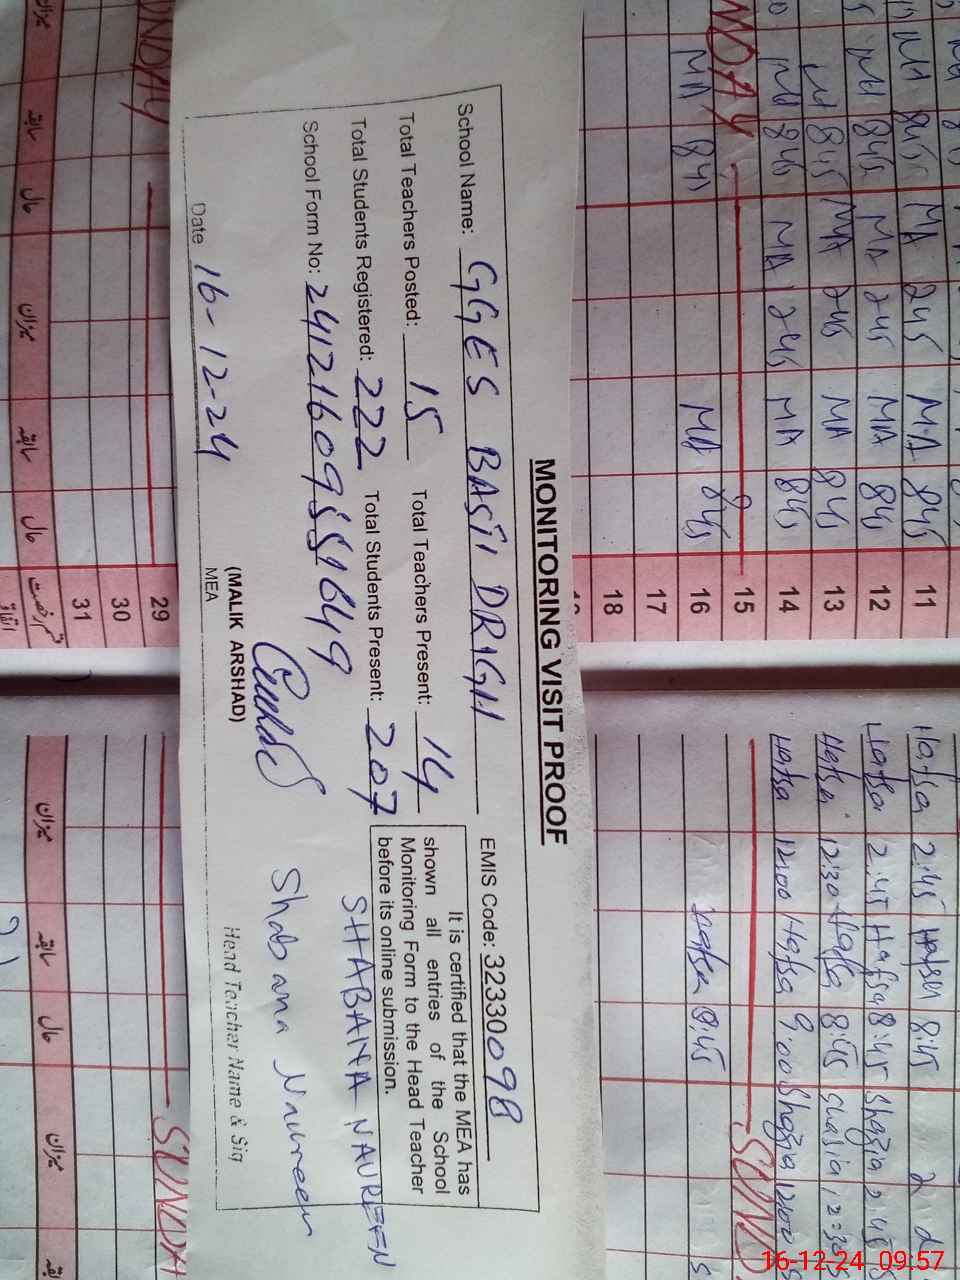 MONITORING VISIT PROOF
School Name: GGES BASTI DRIGH EMIS Code: 32330098
Total Teachers Posted: 15 Total Teachers Present: 14
Total Students Registered: 222 Total Students Present: 207
School Form No:
It is certified that the MEA has
shown all entries of the School
Monitoring Form to the Head Teacher
before its online submission.
SHABANA NAUREEN
Shabana Naureen
Date 16-12-24
(MALIK ARSHAD)
MEA
Head Teacher Name & Sig
11 MA 845 MA 245 MA 845
12 845 MA 245 MA 845
13 845 MA 245 MA 845
14 845 MA 245 MA 845
15 SUNDAY
16 MA 845 MA 845
17
18
29 SUNDAY
30
31
Hafsa 2:45 Hafsa 8:45
Hafsa 2:45 Hafsa 8:45 Shazia 2:45
Hafsa 12:30 Hafsa 8:45 Shazia 12:30
Hafsa 12:00 Hafsa 9:00 Shazia 12:00
SUND
Hafsa 8:45
SUNDA
میزان سابقہ حال میزان سابقہ حال
میزان سابقہ حال میزان سابقہ
16-12-24 09:57